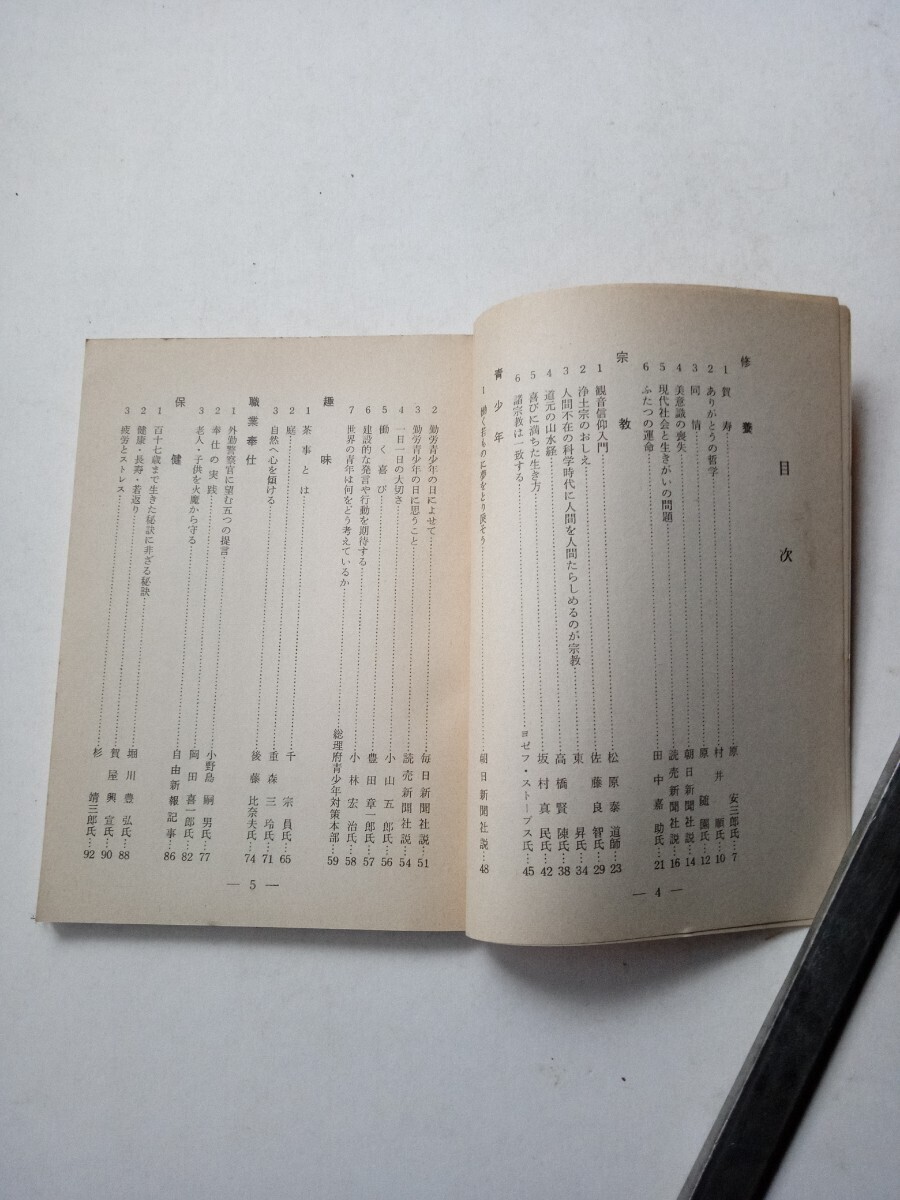 目次
修養
1 賀寿……原 安三郎氏…7
2 ありがとうの哲学……村井 順氏…10
3 同情……原 随園氏…12
4 美意識の喪失……朝日新聞社説…14
5 現代社会と生きがいの問題……読売新聞社説…16
6 ふたつの運命……田中嘉助氏…21
宗教
1 観音信仰入門……松原泰道師…23
2 浄土宗のおしえ……佐藤良智氏…29
3 人間不在の科学時代に人間を人間たらしめるのが宗教……東 昇氏…34
4 道元の山水経……高橋賢陳氏…38
5 喜びに満ちた生き方……坂村真民氏…42
6 諸宗教は一致する……ヨゼフ・ストーブス氏…45
青少年
1 働く若ものに夢をとり戻そう……朝日新聞社説…48
— 4 —
2 勤労青少年の日によせて……毎日新聞社説…51
3 勤労青少年の日に思うこと……読売新聞社説…54
4 一日一日の大切さ……小山五郎氏…56
5 働く喜び……豊田章一郎氏…57
6 建設的な発言や行動を期待する……小林宏治氏…58
7 世界の青年は何をどう考えているか……総理府青少年対策本部…59
趣味
1 茶事とは……千 宗員氏…65
2 庭……重森三玲氏…71
3 自然へ心を傾ける……後藤比奈夫氏…74
職業奉仕
1 外勤警察官に望む五つの提言……小野島嗣男氏…77
2 奉仕の実践……岡田喜一郎氏…82
3 老人・子供を火魔から守る……自由新報記事…86
保健
1 百十七歳まで生きた秘訣に非ざる秘訣……堀川豊弘氏…88
2 健康・長寿・若返り……賀屋興宣氏…90
3 疲労とストレス……杉 靖三郎氏…92
— 5 —